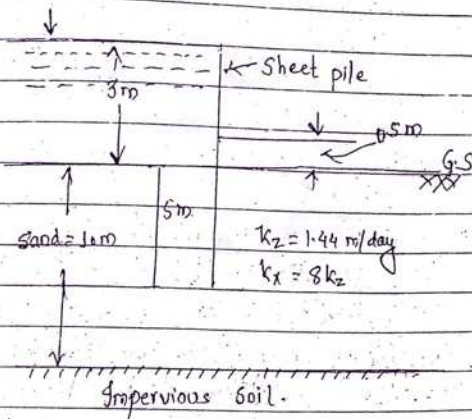 Sheet pile
3m
0.5m
G.S
5m
Sand = 10m
kz = 1.44 m/day
kx = 8kz
Impervious Soil.